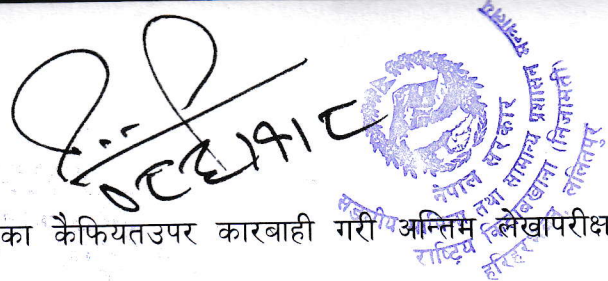 ०८१।५।८
नेपाल सरकार
सङ्घीय मामिला तथा सामान्य प्रशासन मन्त्रालय
राष्ट्रिय किताबखाना (निजामती)
हरिहरभवन ललितपुर
का कैफियतउपर कारबाही गरी अन्तिम लेखापरीक्ष